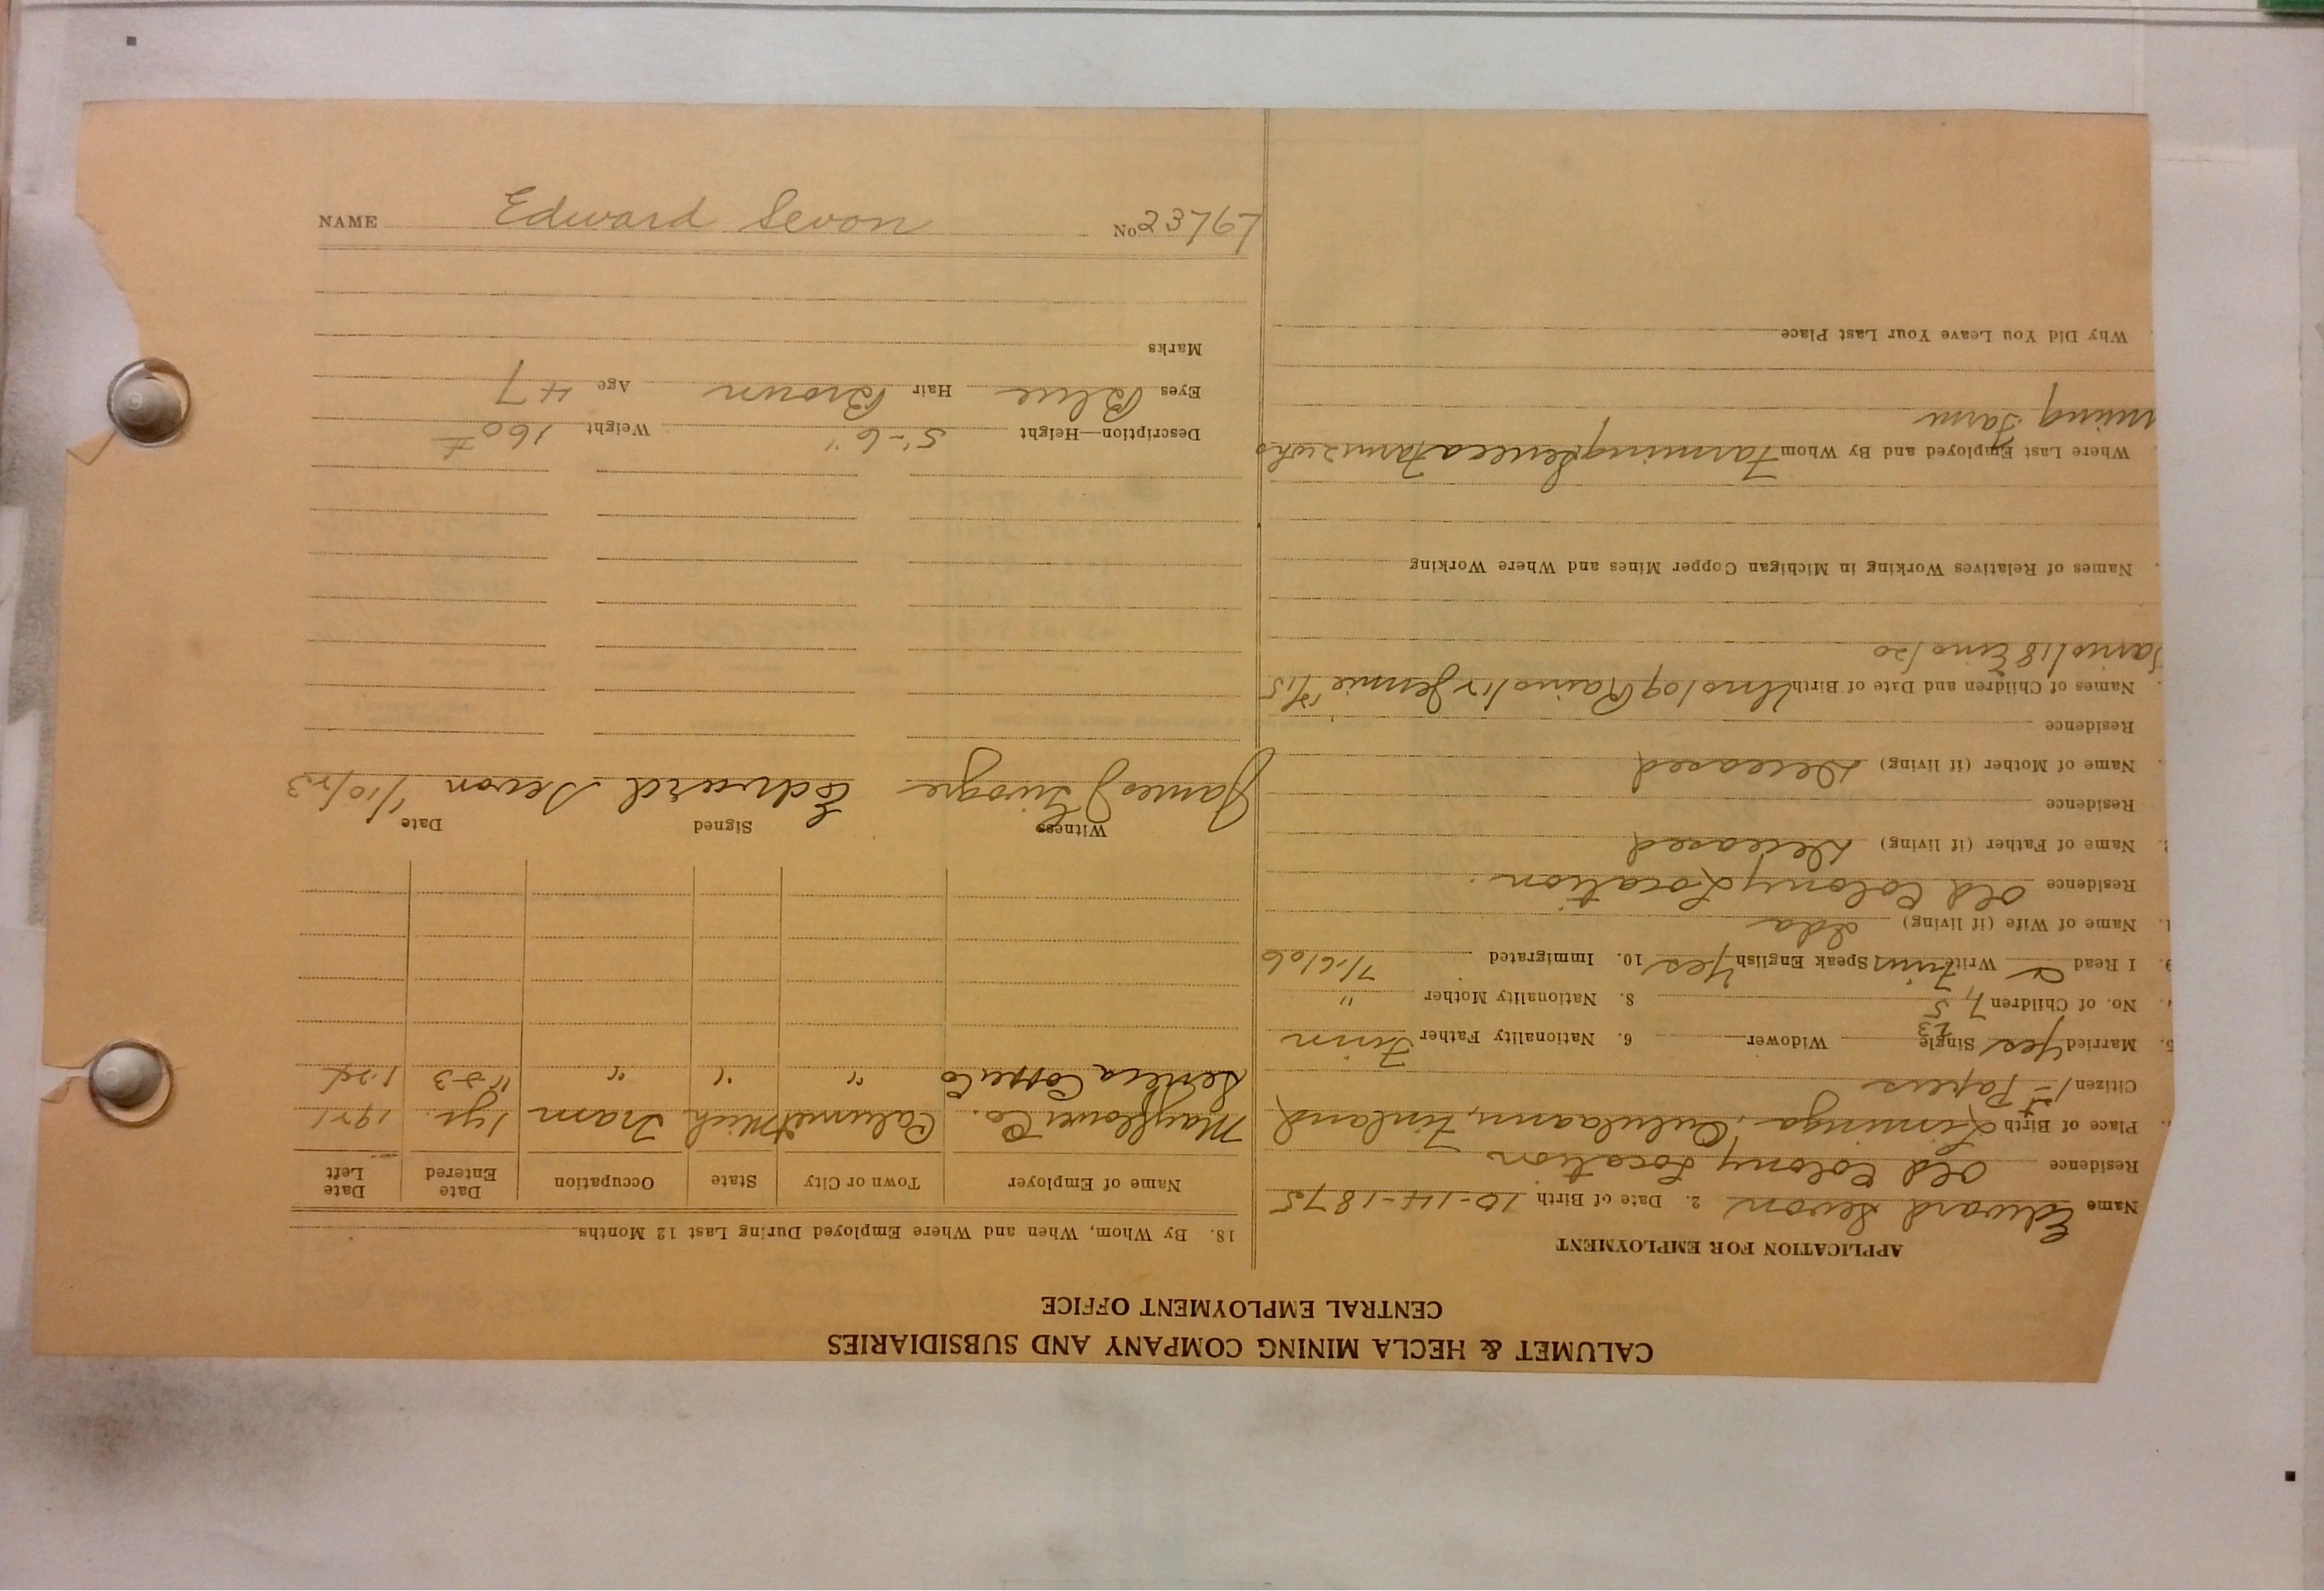 CALUMET & HECLA MINING COMPANY AND SUBSIDIARIES
CENTRAL EMPLOYMENT OFFICE
APPLICATION FOR EMPLOYMENT
Name Edward Sevon 2. Date of Birth 10-14-1875
Residence Old Colony Location
Place of Birth Liminga, Finland
Citizen 1st Papers
5. Married Yes 23 Single Widower 6. Nationality Father Finn
No. of Children 5 8. Nationality Mother "
9. I Read & Write Finn Speak English Yes 10. Immigrated 7/16/06
1. Name of Wife (if living) Ida
Residence Old Colony Location.
2. Name of Father (if living) Deceased
Residence
Name of Mother (if living) Deceased
Residence
Names of Children and Date of Birth Uno/09 Raino/12 Jennie /15
/18 Eino/20
Names of Relatives Working in Michigan Copper Mines and Where Working
Where Last Employed and By Whom Farming Seneca Farm 2 wks
Farm
Why Did You Leave Your Last Place
18. By Whom, When and Where Employed During Last 12 Months
Name of Employer Town or City State Occupation Date Entered Date Left
Mayflower Co. Calumet Mich Tram 1 yr. 1921
Seneca Copper Co " " "
Witness Signed Date
James Edward Sevon 1/10/23
Description—Height 5'-6" Weight 160 #
Eyes Blue Hair Brown Age 47
Marks
NAME Edward Sevon No 23767